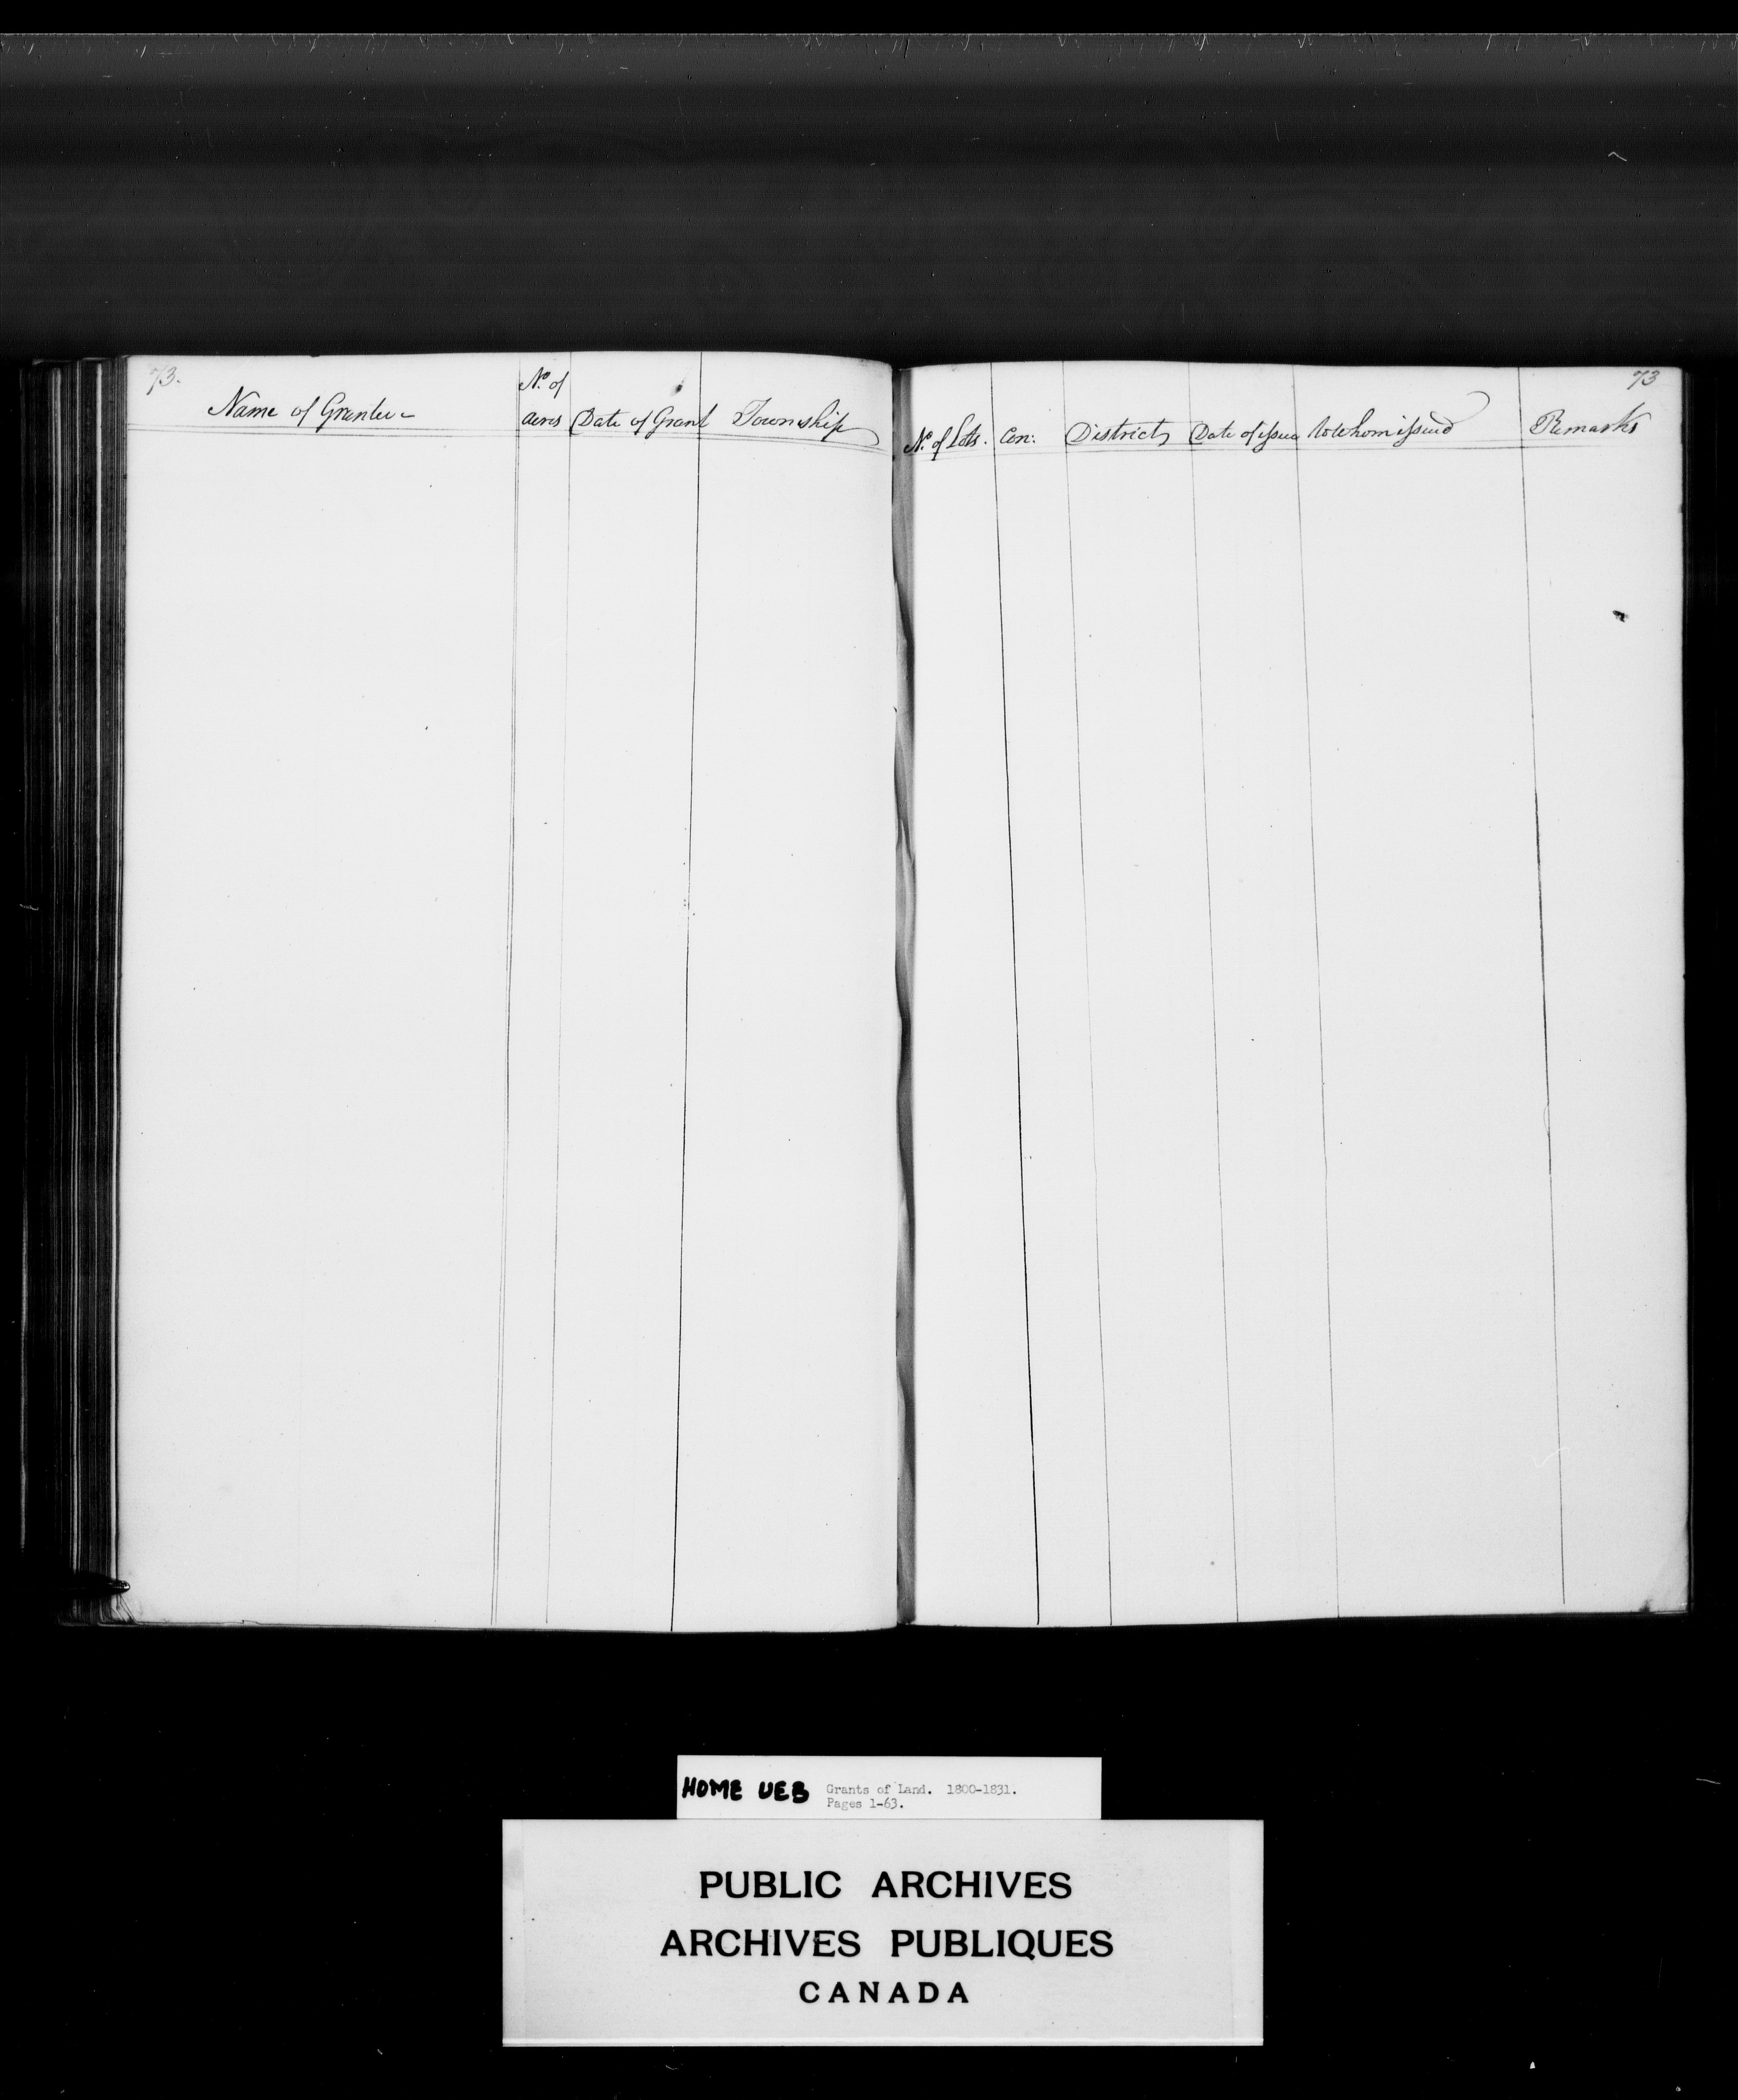 73.
Name of Grantee
No. of acres
Date of Grant
Township
73
No. of Lots.
Con:
District
Date of issue
to whom issued
Remarks
HOME UEB
Grants of Land. 1800-1831.
Pages 1-63.
PUBLIC ARCHIVES
ARCHIVES PUBLIQUES
CANADA